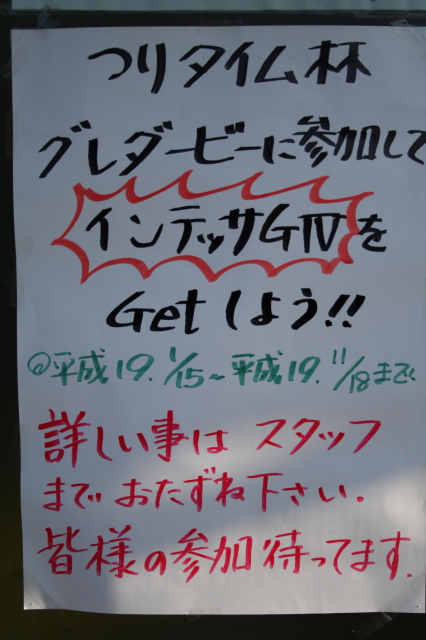 つりタイム杯
グレダービーに参加して
インテッサGⅣを
Getしよう!!
◎平成19.1/15~平成19.11/18まで
詳しい事はスタッフ
までおたずね下さい。
皆様の参加待ってます.